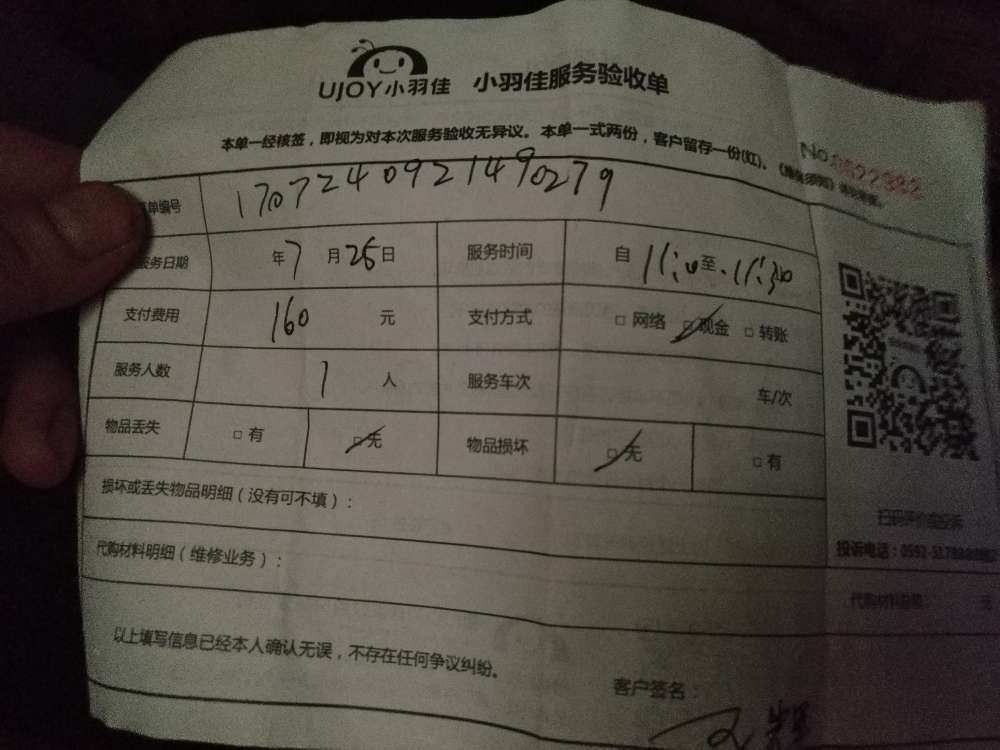 UJOY小羽佳 小羽佳服务验收单
本单一经核签，即视为对本次服务验收无异议。本单一式两份，客户留存一份(红)、
No.0522382
单编号 1707240921490279
服务日期 年7月25日 服务时间 自 11:10至 11:30
支付费用 160 元 支付方式 □ 网络 □ 现金 □ 转账
服务人数 1 人 服务车次 车/次
物品丢失 □ 有 □ 无 物品损坏 □ 无 □ 有
损坏或丢失物品明细（没有可不填）：
投诉电话：0592-
代购材料明细（维修业务）：
元
以上填写信息已经本人确认无误，不存在任何争议纠纷。
客户签名：